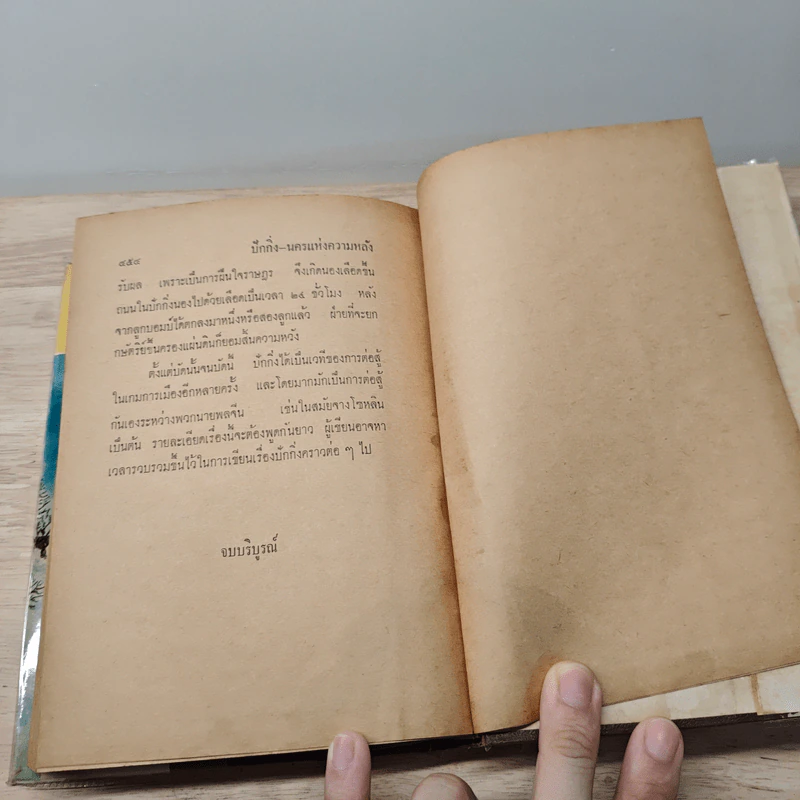 ๔๕๔ ปักกิ่ง—นครแห่งความหลัง
รับผล เพราะเป็นการฝืนใจราษฎร จึงเกิดนองเลือดขึ้น
ถนนในปักกิ่งนองไปด้วยเลือดเป็นเวลา ๒๔ ชั่วโมง หลัง
จากลูกบอมบ์ได้ตกลงมาหนึ่งหรือสองลูกแล้ว ฝ่ายที่จะยก
กษัตริย์ขึ้นครองแผ่นดินก็ยอมสิ้นความหวัง
ตั้งแต่บัดนั้นจนบัดนี้ ปักกิ่งได้เป็นเวทีของการต่อสู้
ในเกมการเมืองอีกหลายครั้ง และโดยมากมักเป็นการต่อสู้
กันเองระหว่างพวกนายพลจีน เช่นในสมัยจางโซหลิน
เป็นต้น รายละเอียดเรื่องนี้จะต้องพูดกันยาว ผู้เขียนอาจหา
เวลารวบรวมขึ้นไว้ในการเขียนเรื่องปักกิ่งคราวต่อ ๆ ไป
จบบริบูรณ์